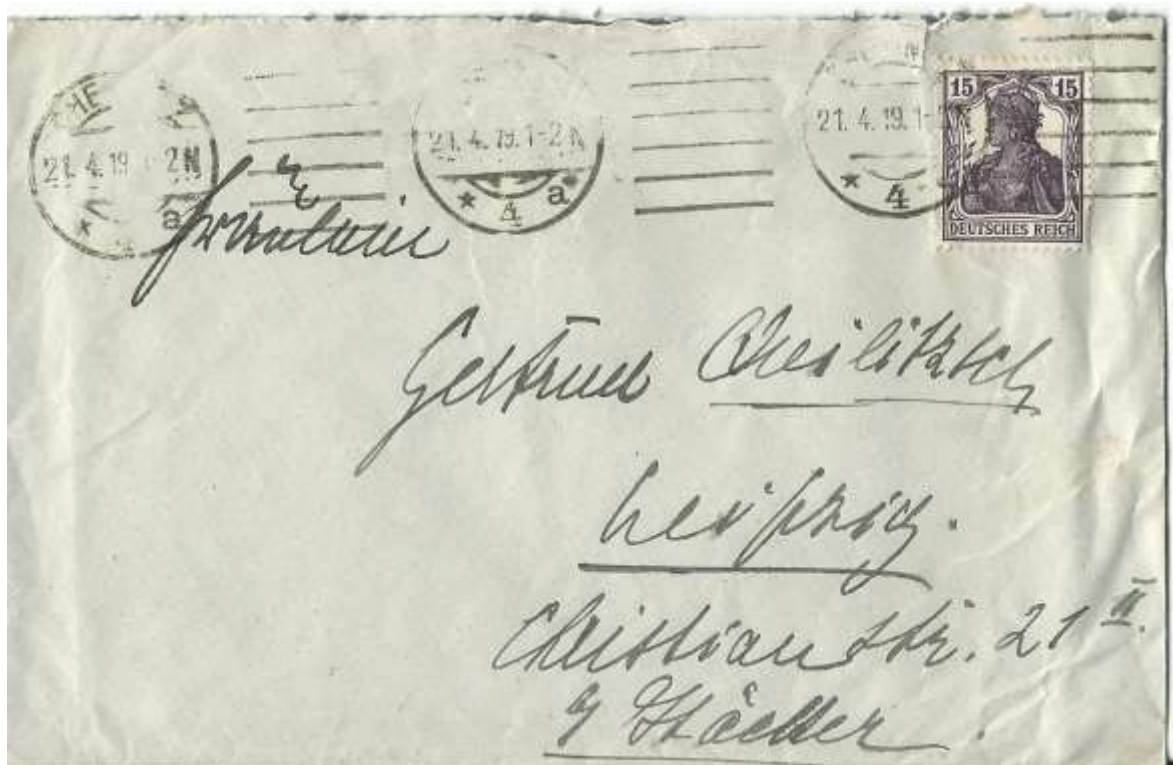 21.4.19 1-2N
* 4 a
21.4.19.1-2N
* 4 a
21.4.19.1-
* 4
15 15
DEUTSCHES REICH
Fräulein
Gertrud
Leipzig.
Christianstr. 21 II.